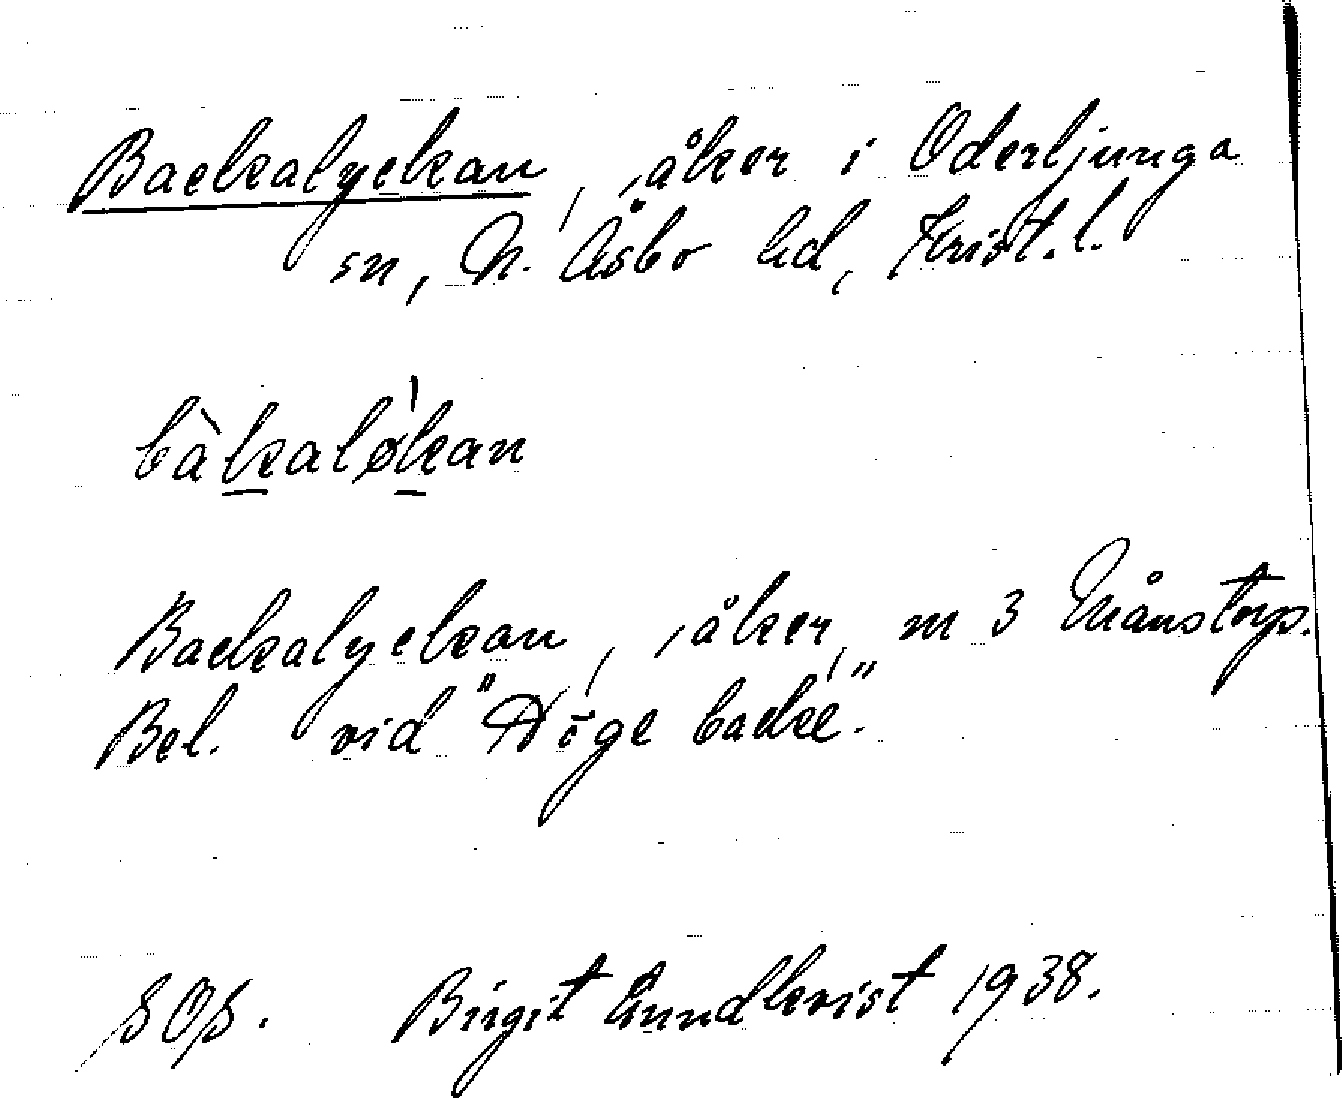 Backalyckan, åker i Oderljunga
sn, N. Åsbo hd, Krist. l.
bàkaløkan
Backalyckan, åker, m 3 Månstorp.
Bel. vid "Höge backe".
SOS. Birgit Lundkvist 1938.